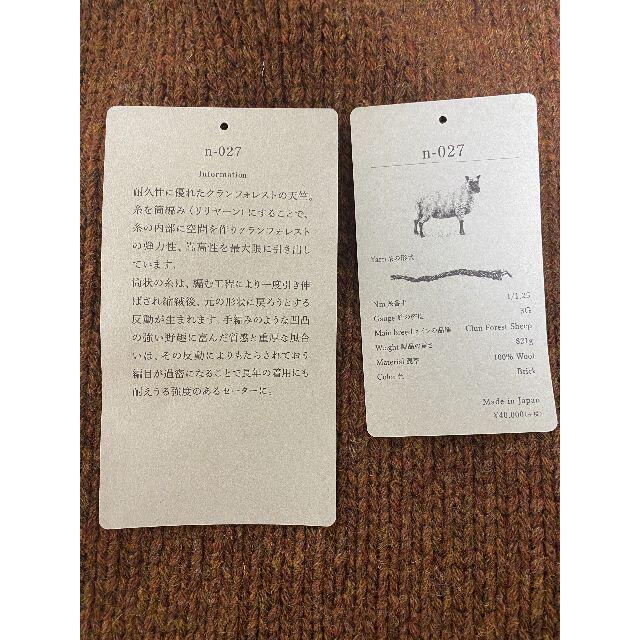 n-027
Information
耐久性に優れたクランフォレストの天竺。
糸を筒編み(リリヤーン)にすることで、
糸の内部に空間を作りクランフォレスト
の強力性、嵩高性を最大限に引き出し
ています。
筒状の糸は、編む工程により一度引き伸
ばされ縮絨後、元の形状に戻ろうとする
反動が生まれます。手編みのような凹凸
の強い野趣に富んだ質感と重厚な風合
いは、その反動によりもたらされており
編目が過密になることで長年の着用にも
耐えうる強度のあるセーターに。
n-027
Yarn 糸の形状
Nm 糸番手 1/1.25
Gauge 編の密度 3G
Main breed メインの品種 Clun Forest Sheep
Weight 製品の重さ 821g
Material 混率 100% Wool
Color 色 Brick
Made in Japan
¥40,000(+税)